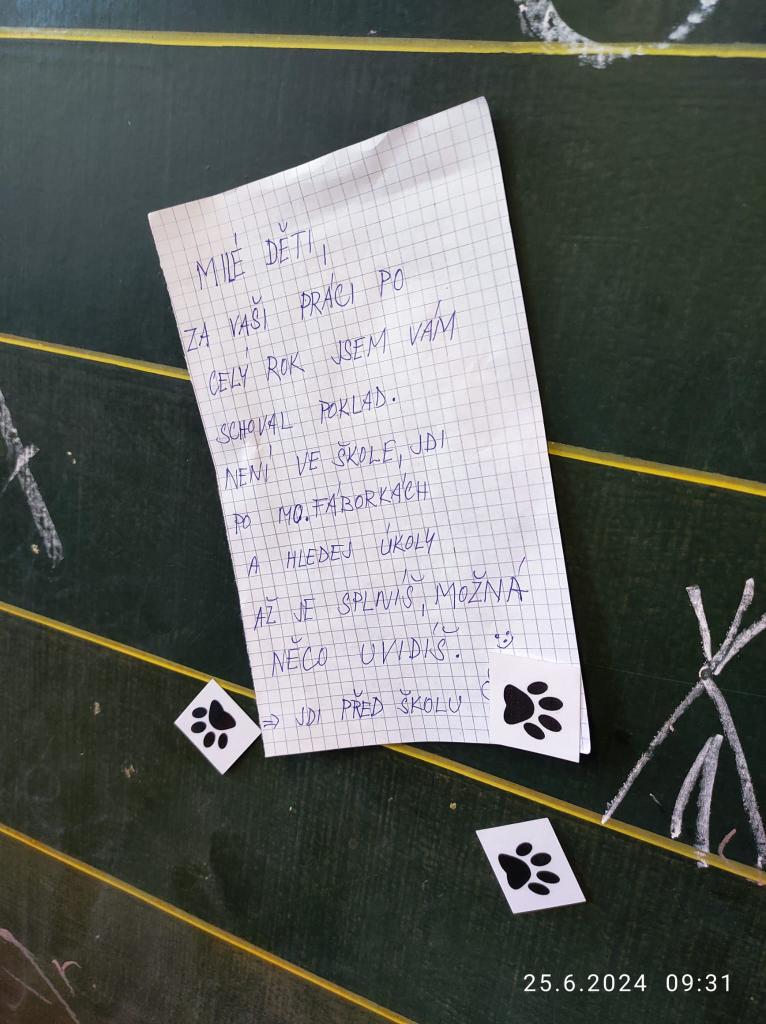 MILÉ DĚTI,
ZA VAŠI PRÁCI PO
CELÝ ROK JSEM VÁM
SCHOVAL POKLAD.
NENÍ VE ŠKOLE, JDI
PO MO.FÁBORKÁCH
A HLEDEJ ÚKOLY
AŽ JE SPLNÍŠ, MOŽNÁ
NĚCO UVIDÍŠ.
⇒ JDI PŘED ŠKOLU
25.6.2024 09:31